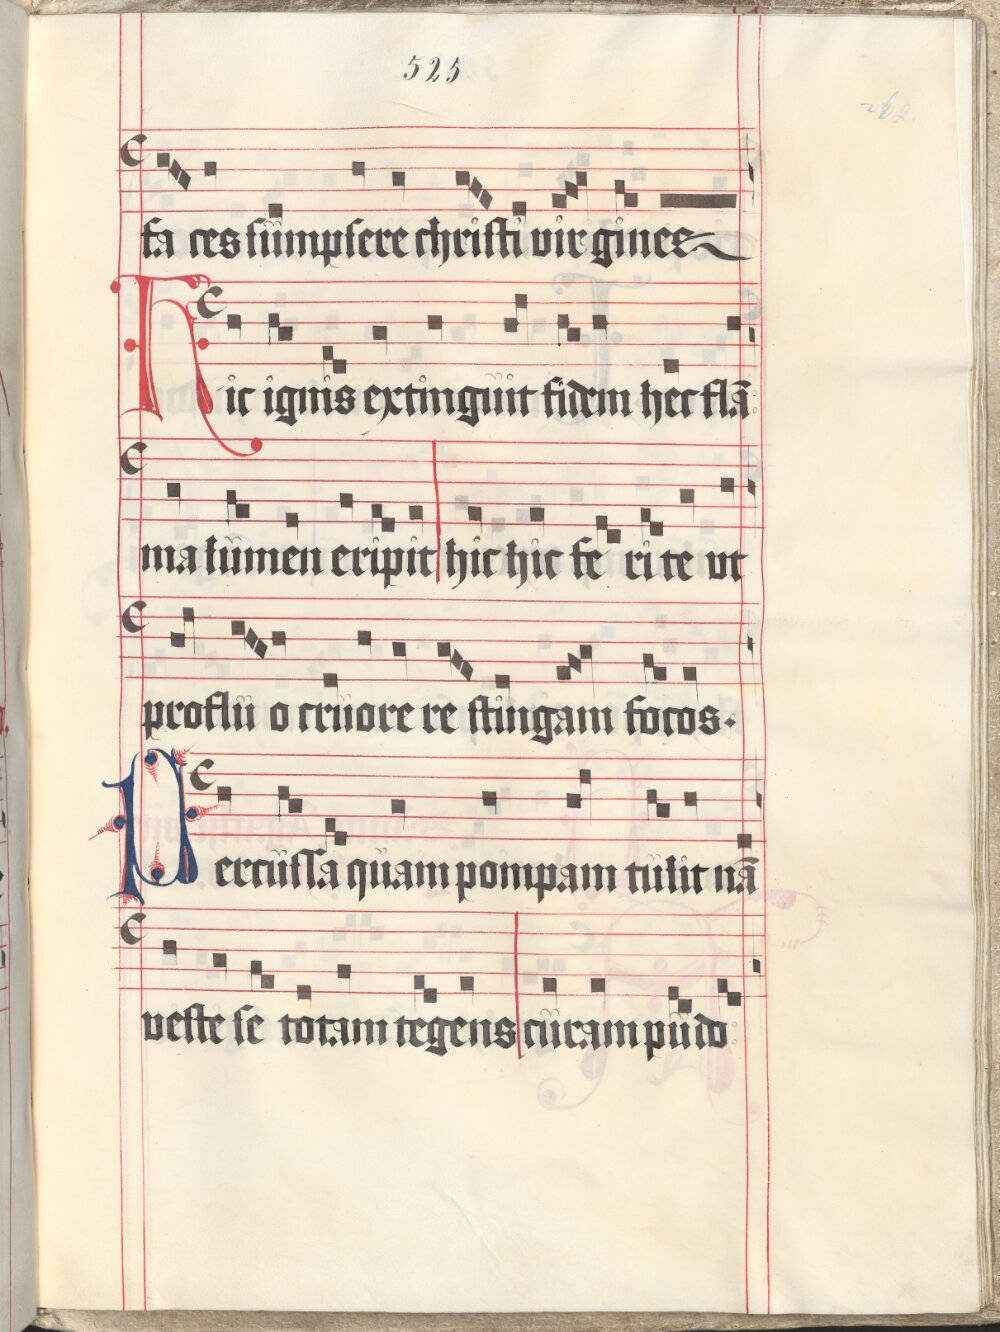 525
fa ces sumpsere christi virgines
Hic ignis extinguit fidem hec flā
ma lumen eripit hic hic fe ri te vt
proflu o cruore re stingam focos.
Percussa quam pompam tulit nā
veste se totam tegens curam pudo